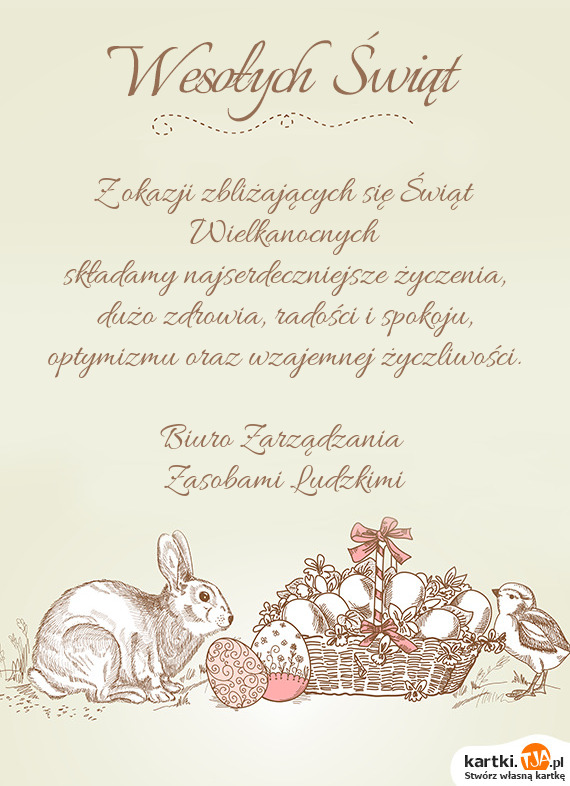 Wesołych Świąt
Z okazji zbliżających się Świąt
Wielkanocnych
składamy najserdeczniejsze życzenia,
dużo zdrowia, radości i spokoju,
optymizmu oraz wzajemnej życzliwości.
Biuro Zarządzania
Zasobami Ludzkimi
kartki.TJA.pl
Stwórz własną kartkę